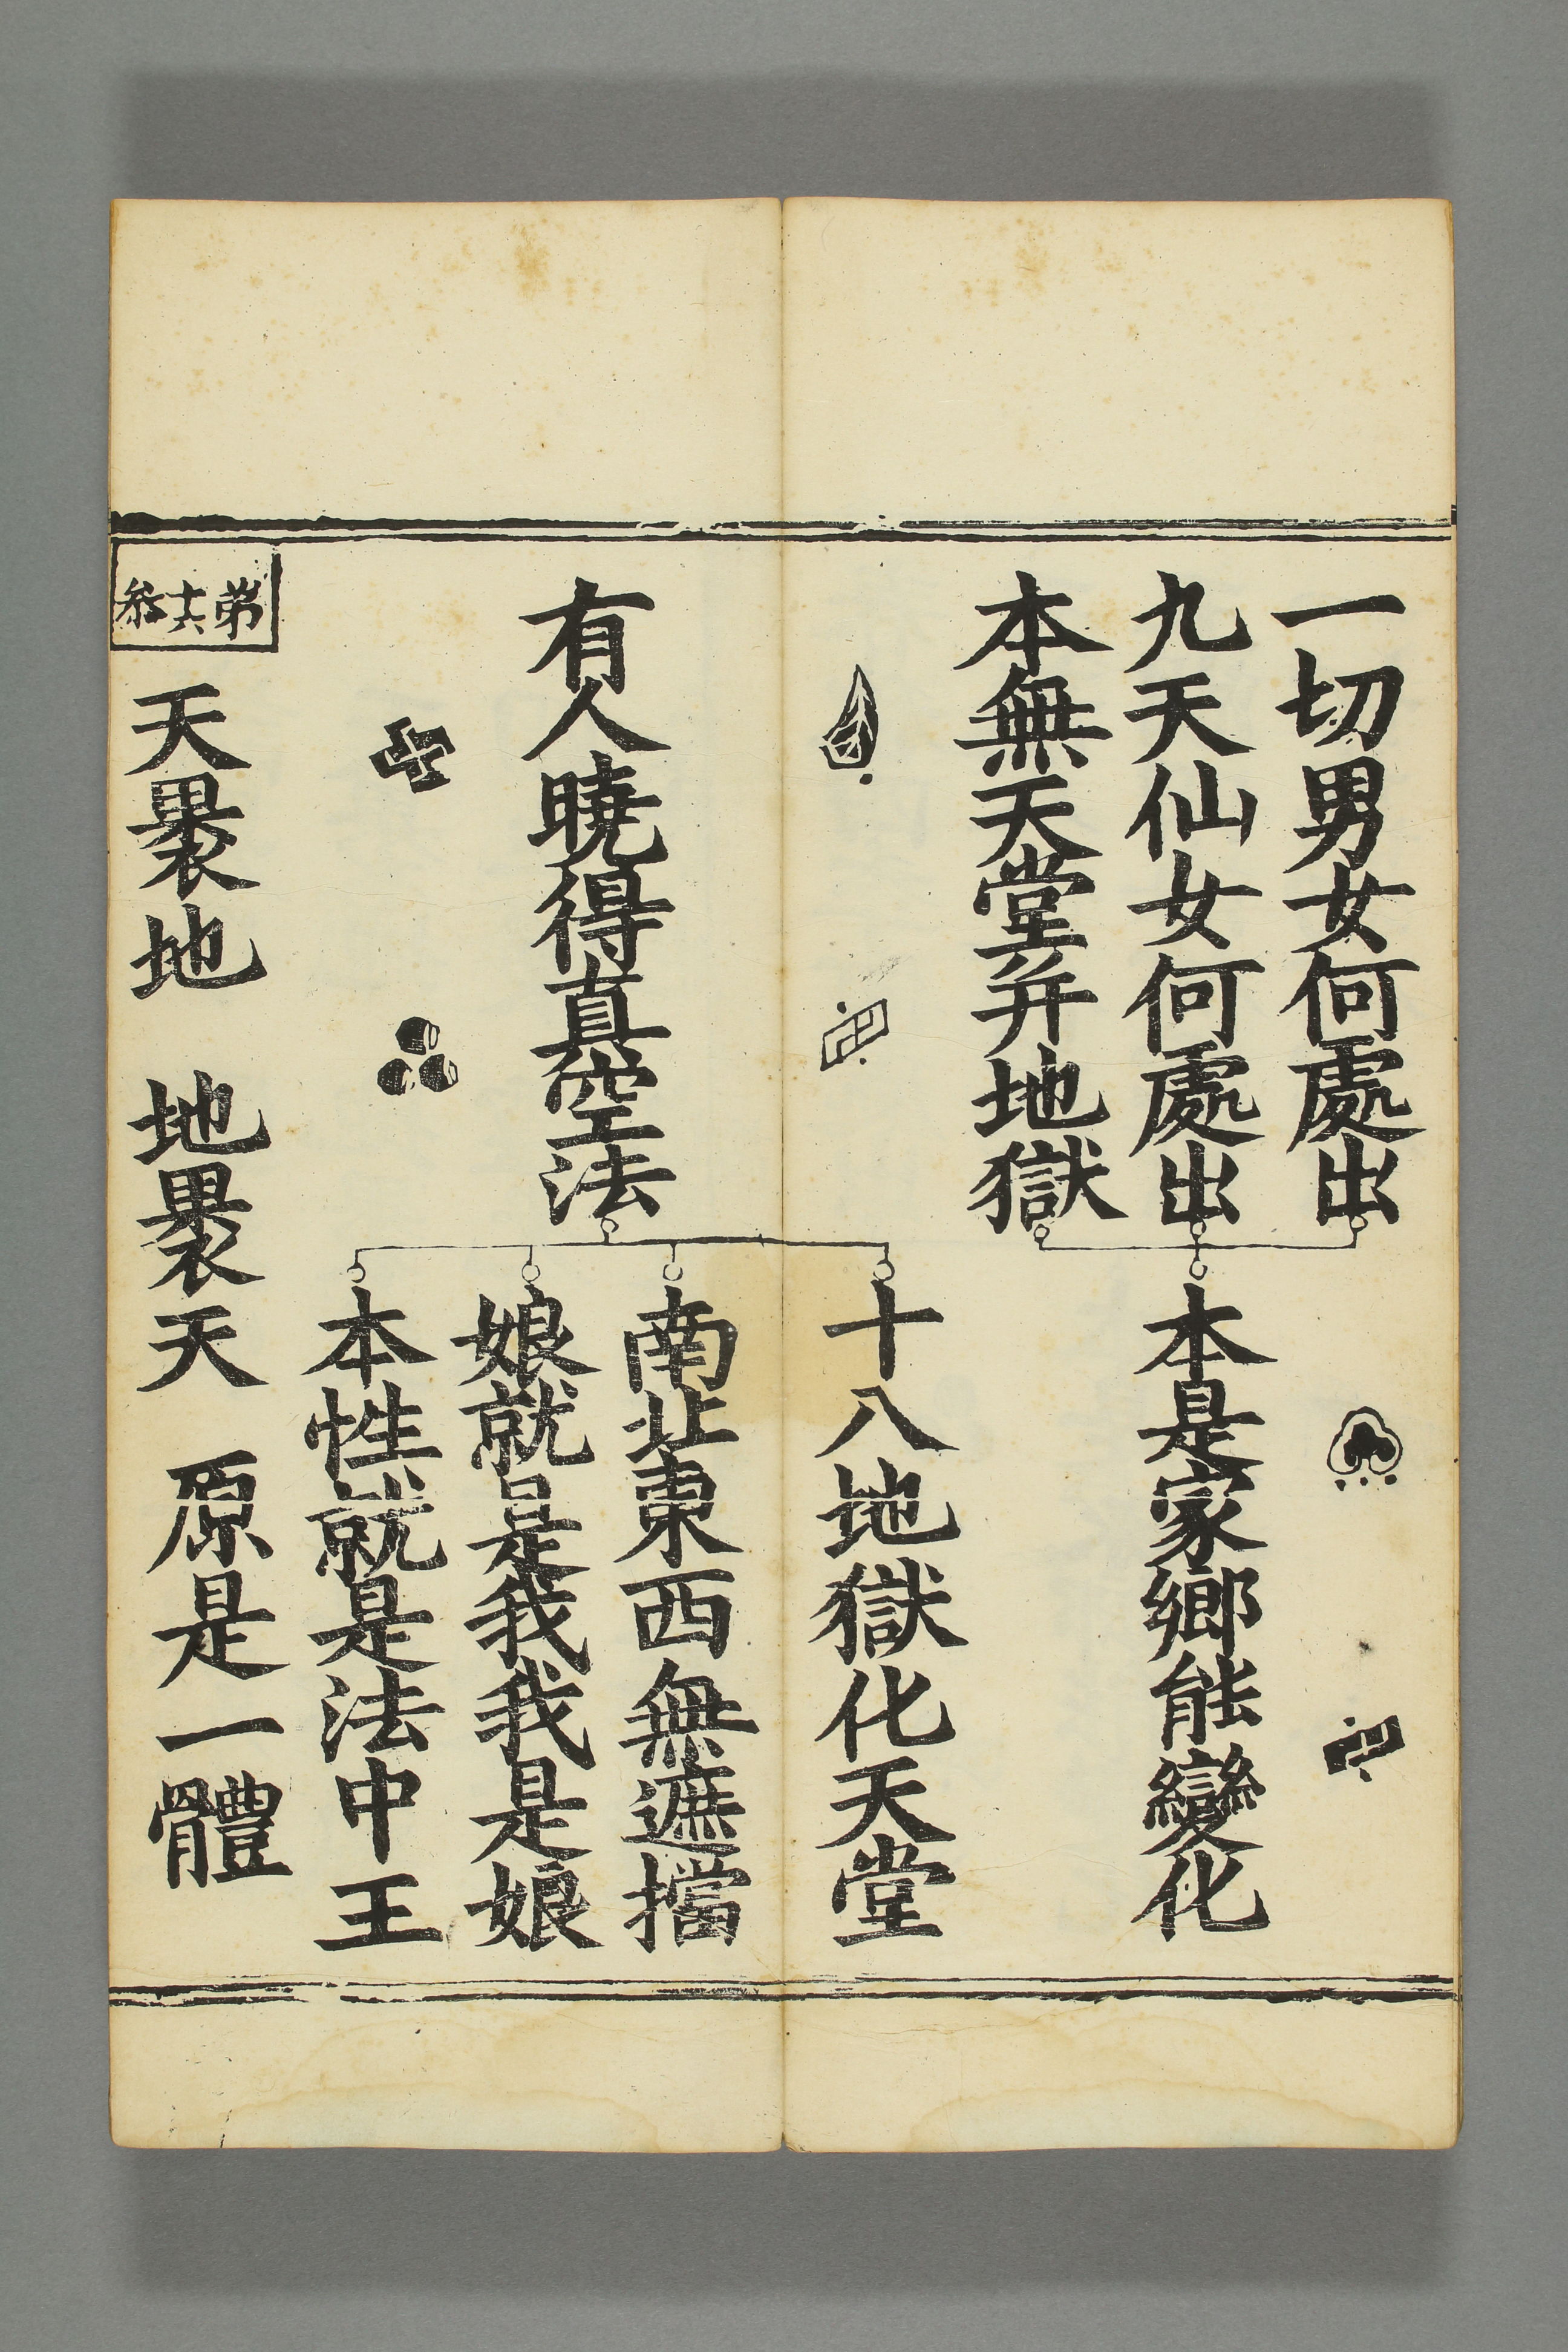 一切男女何處出
九天仙女何處出
本無天堂并地獄
本是家鄉能變化
有人曉得真空法
十八地獄化天堂
南北東西無遮擋
娘就是我我是娘
本性就是法中王
第十六叅
天褁地 地褁天 原是一體